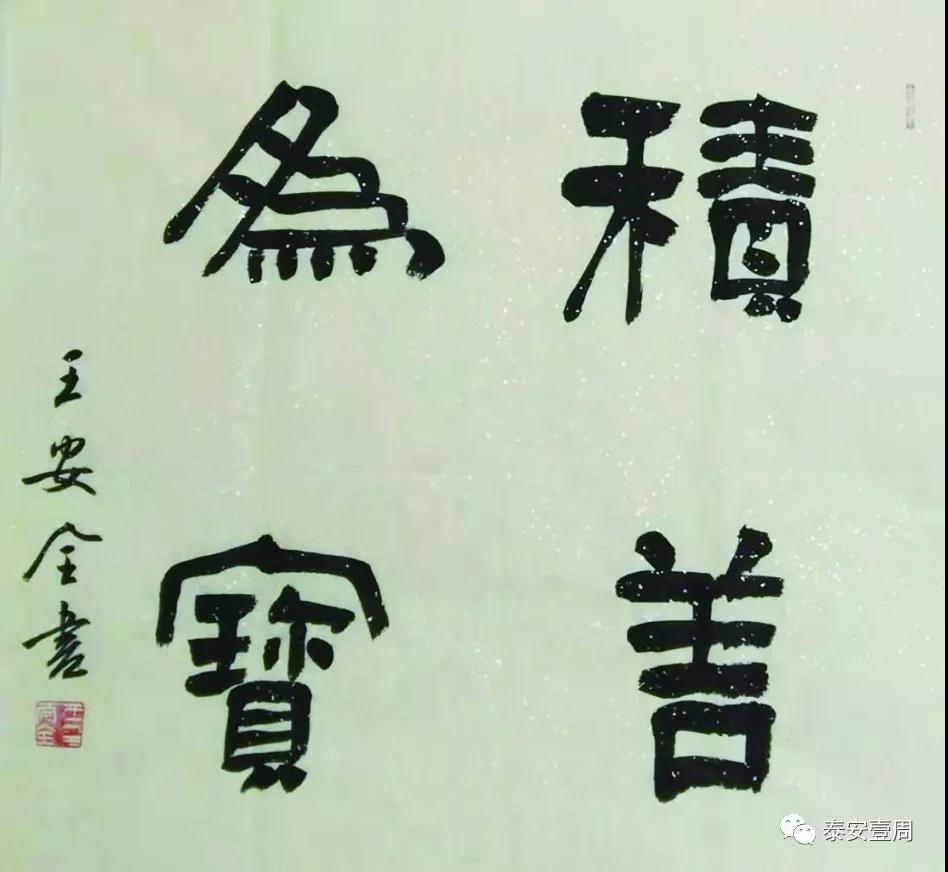 積善
為寶
王安全書
泰安壹周